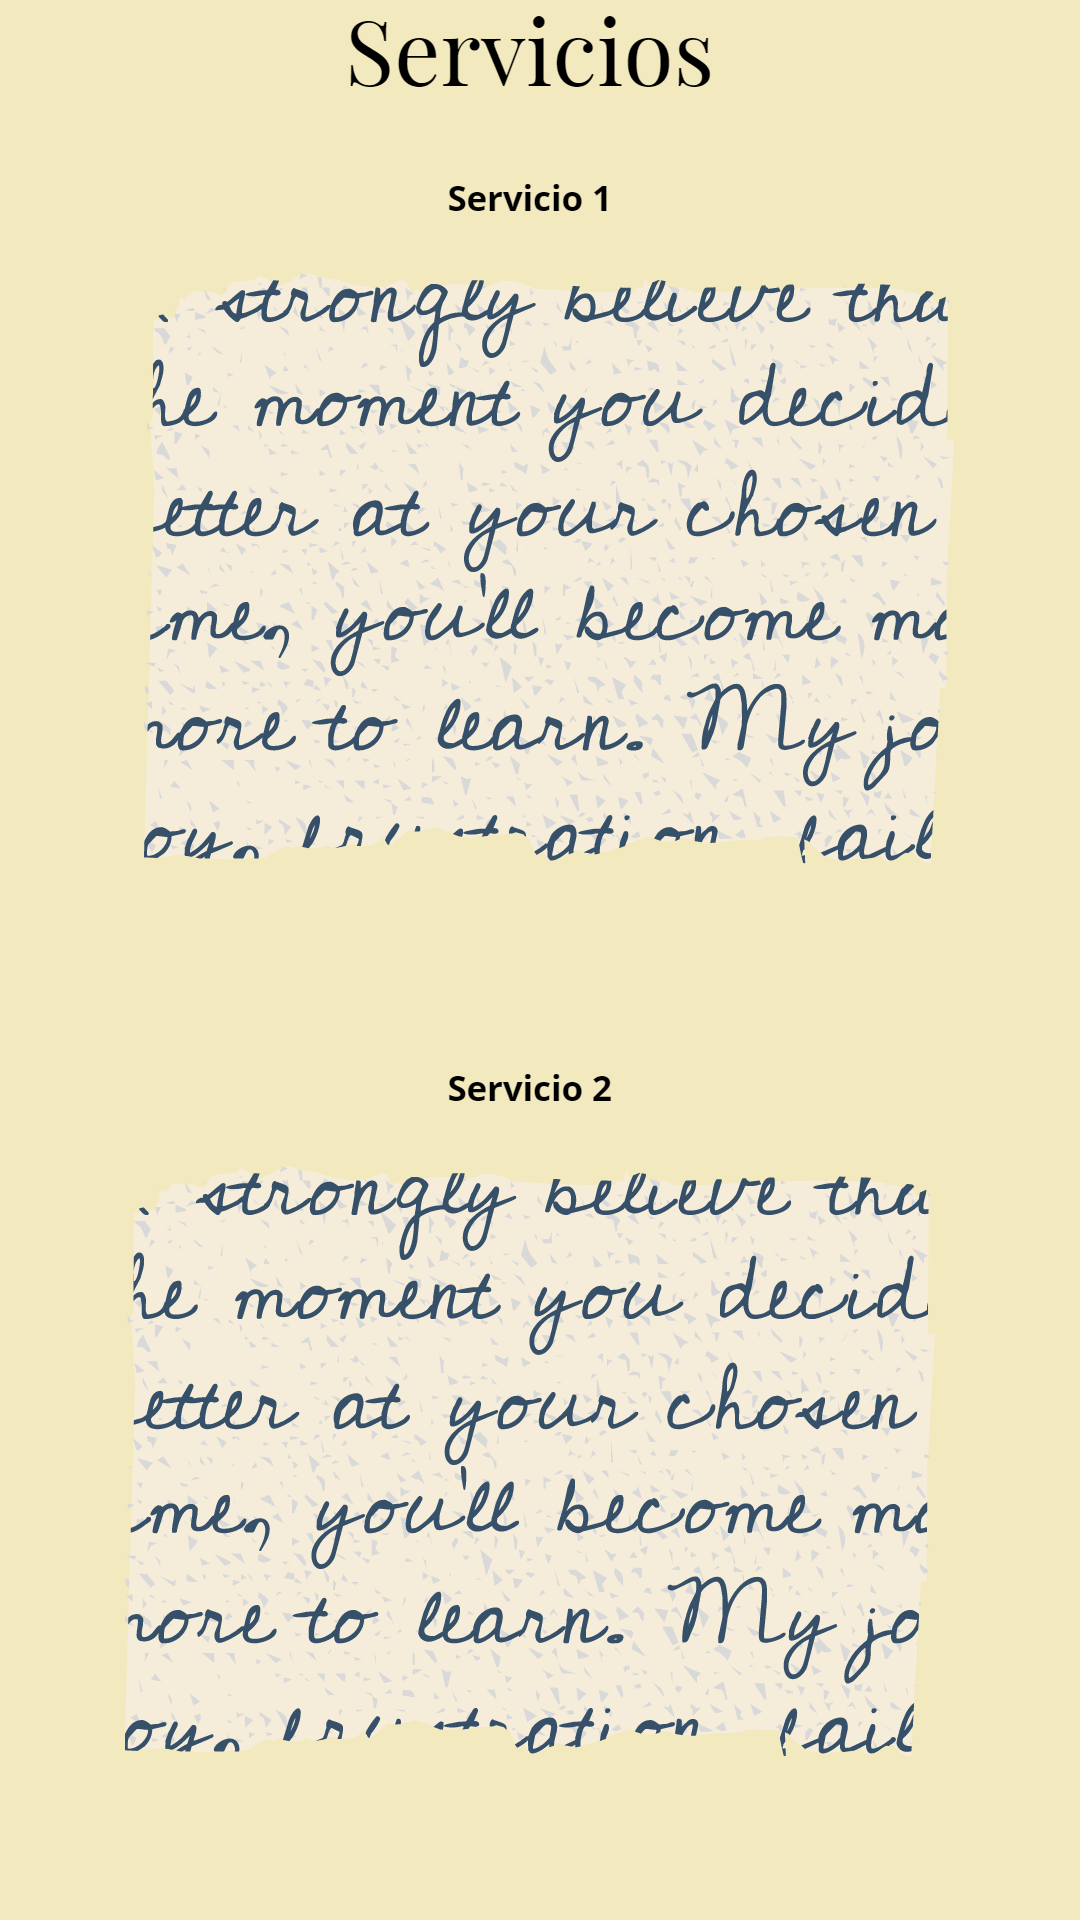 Servicios
Servicio 1
strongly believe tha
he moment you decid
etter at your chosen
me, you'll become mo
nore to learn. My jo
oy,
Servicio 2
strongly believe tha
he moment you decid
etter at your chosen
me, you'll become mo
nore to learn. My jo
oy,